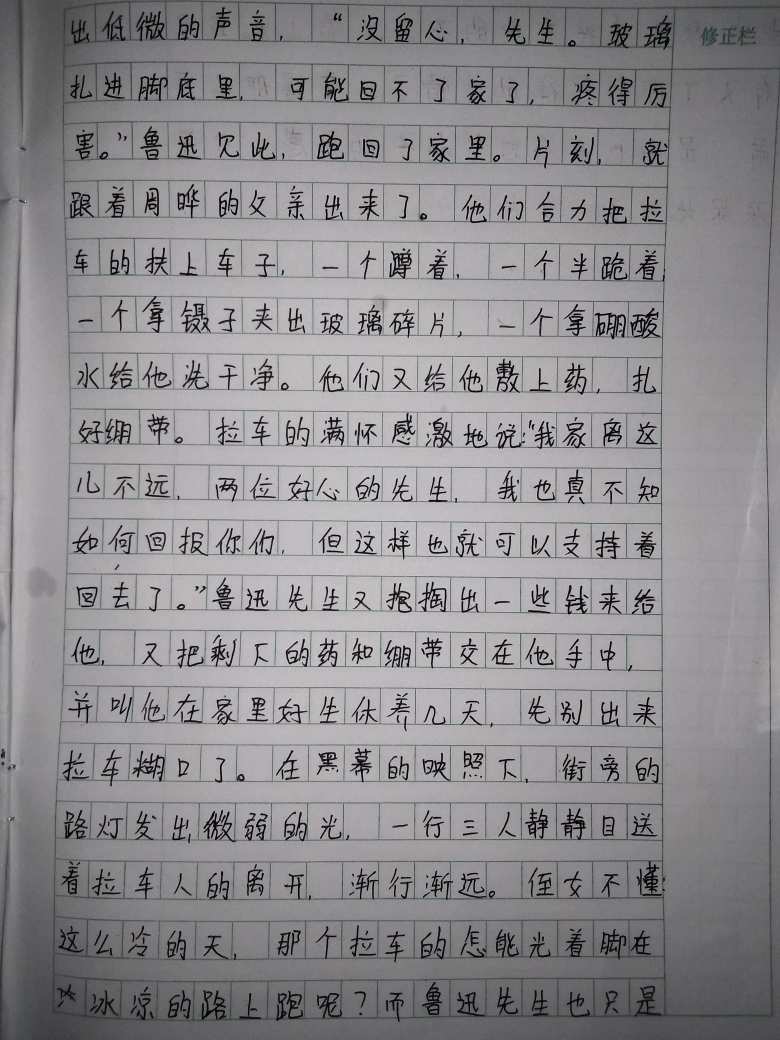 出低微的声音，“没留心，先生。玻璃
修正栏
扎进脚底里，可能回不了家了，疼得厉
害。”鲁迅见此，跑回了家里。片刻，就
跟着周晔的父亲出来了。他们合力把拉
车的扶上车子，一个蹲着，一个半跪着，
一个拿镊子夹出玻璃碎片，一个拿硼酸
水给他洗干净。他们又给他敷上药，扎
好绷带。拉车的满怀感激地说：“我家离这
儿不远，两位好心的先生，我也真不知
如何回报你们，但这样也就可以支持着
回去了。”鲁迅先生又掏出一些钱来给
他，又把剩下的药和绷带交在他手中，
并叫他在家里好生休养几天，先别出来
拉车糊口了。在黑幕的映照下，街旁的
路灯发出微弱的光，一行三人静静目送
着拉车人的离开，渐行渐远。侄女不懂：
这么冷的天，那个拉车的怎能光着脚在
冰凉的路上跑呢？而鲁迅先生也只是